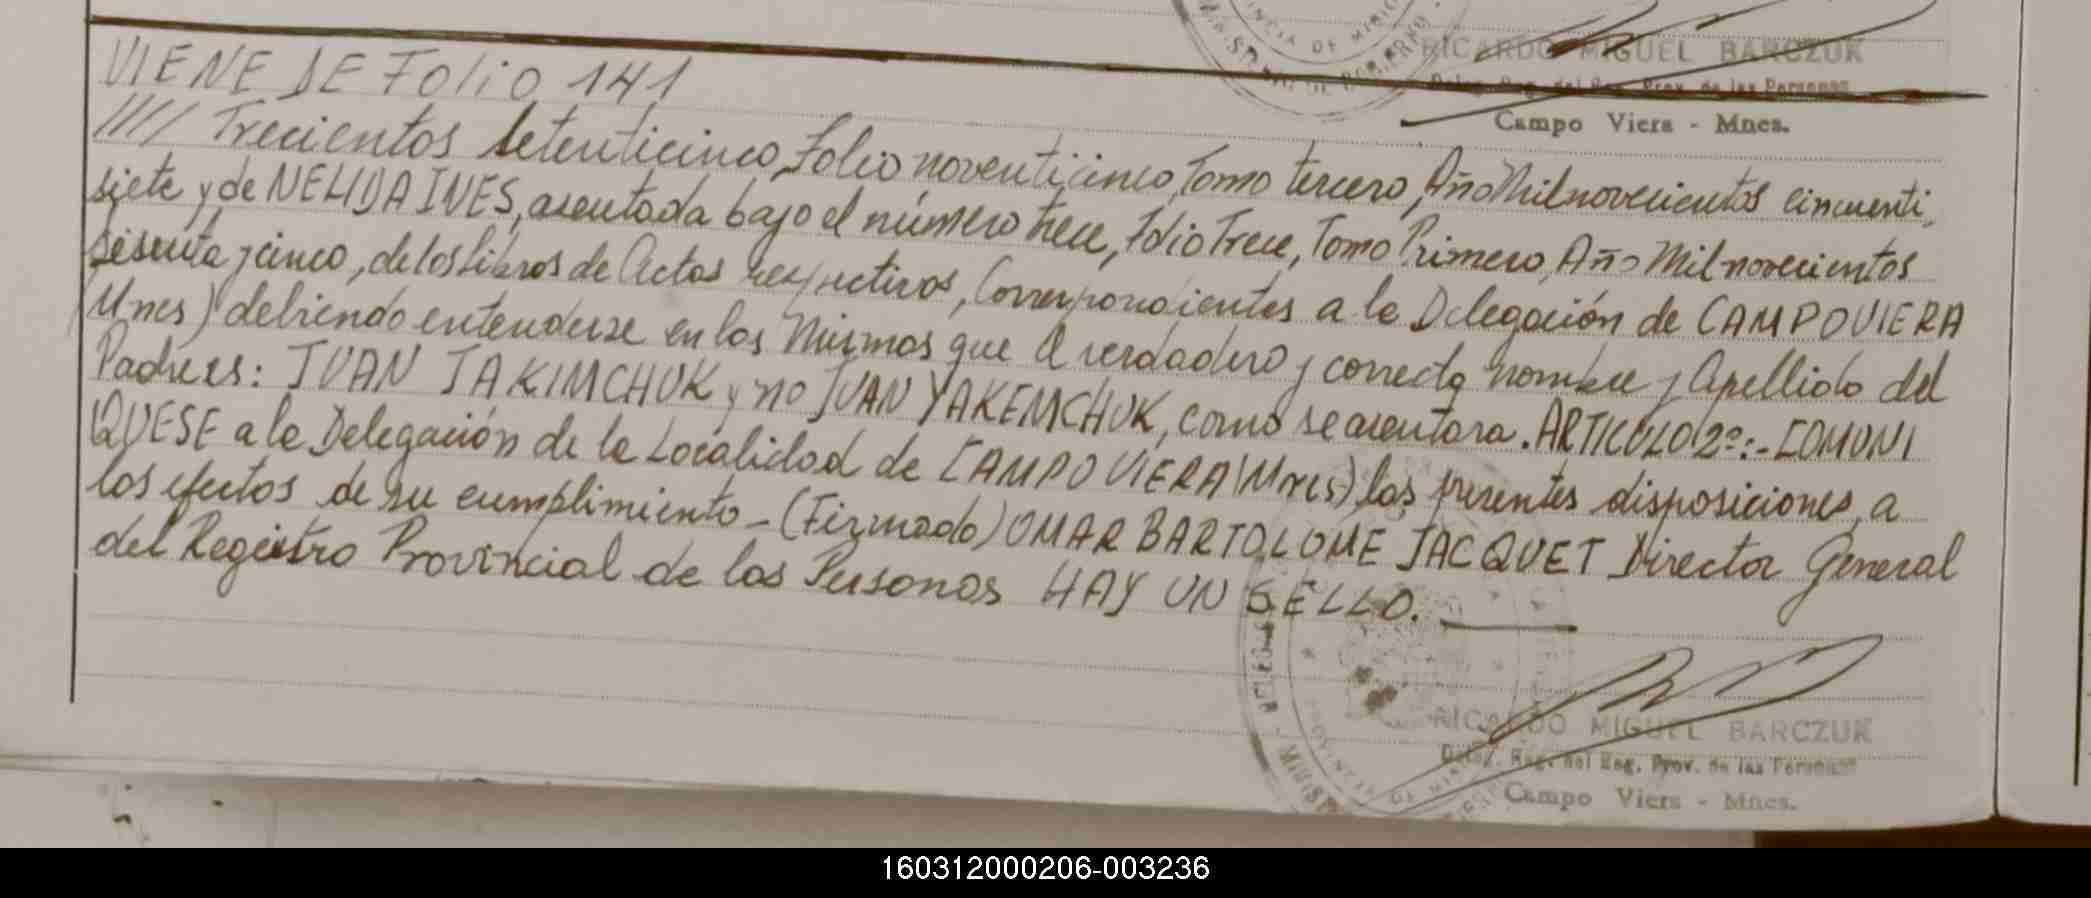 RICARDO MIGUEL BARCZUK
Campo Viera - Mnes.
VIENE DE FOLIO 141
//// Trecientos Setenticinco, Folio noventicinco, Tomo tercero, Año Mil novecientos cincuenti
siete y de NELIDA INES, asentada bajo el número trece, Folio Trece, Tomo Primero, Año Mil novecientos
sesenta y cinco, de los Libros de Actas respectivos, Correspondientes a la Delegación de CAMPO VIERA
(Mnes) debiendo entenderse en los Mismos que el verdadero y correcto nombre y Apellido del
Padre es: JUAN JAKIMCHUK y no JUAN YAKEMCHUK, como se asentara. ARTICULO 2º:- COMUNI
QUESE a la Delegación de la Localidad de CAMPO VIERA (Mnes) las presentes disposiciones, a
los efectos de su cumplimiento - (Firmado) OMAR BARTOLOME JACQUET Director General
del Registro Provincial de las Personas HAY UN SELLO.
RICARDO MIGUEL BARCZUK
Reg. del Reg. Prov. de las Personas
Campo Viera - Mnes.
160312000206-003236